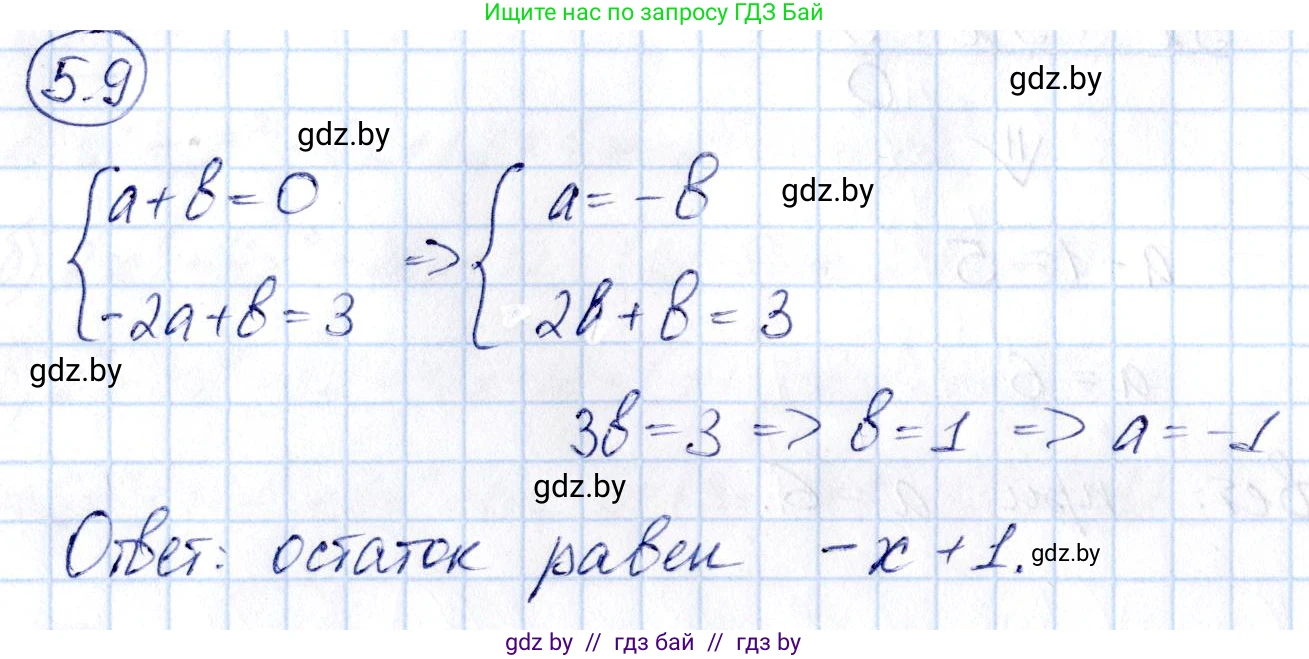 Ищите нас по запросу ГДЗ Бай
5.9
gdz.by
gdz.by
{ a+b=0 => { a=-b
gdz.by
-2a+b=3 2b+b=3
gdz.by
3b=3 => b=1 => a=-1
gdz.by
Ответ: остаток равен -x+1.
gdz.by
gdz by // гдз бай // gdz by